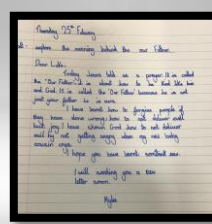 Thursday 25th February
explore the meaning behind the our Father.
Dear Luke,
Today Jesus told us a prayer it is called
the "Our Father" it is about how to be kind like him
and God. It is called the 'Our Father' because he is not
just your father he is ours.
I have learnt how to forgive people if
they have done wrong, how to not deliver evil
but joy I have shown God how to not deliver
evil by not getting angry when my baby
cousin cries.
I hope you have learnt something too.
I will sending you a new
letter soon.
Myles